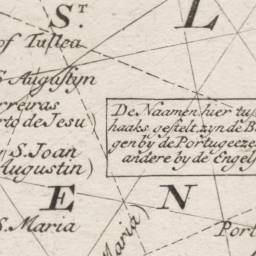 S.T L
of Tullea
S Augustyn
rreiras
rto de Jesu)
S. Joan
Augustin)
De Naamen hier tus
haaks gestelt, zyn de B
gen by de Portugeeze
andere by de Engels
E N
S. Maria
Maria)
Port